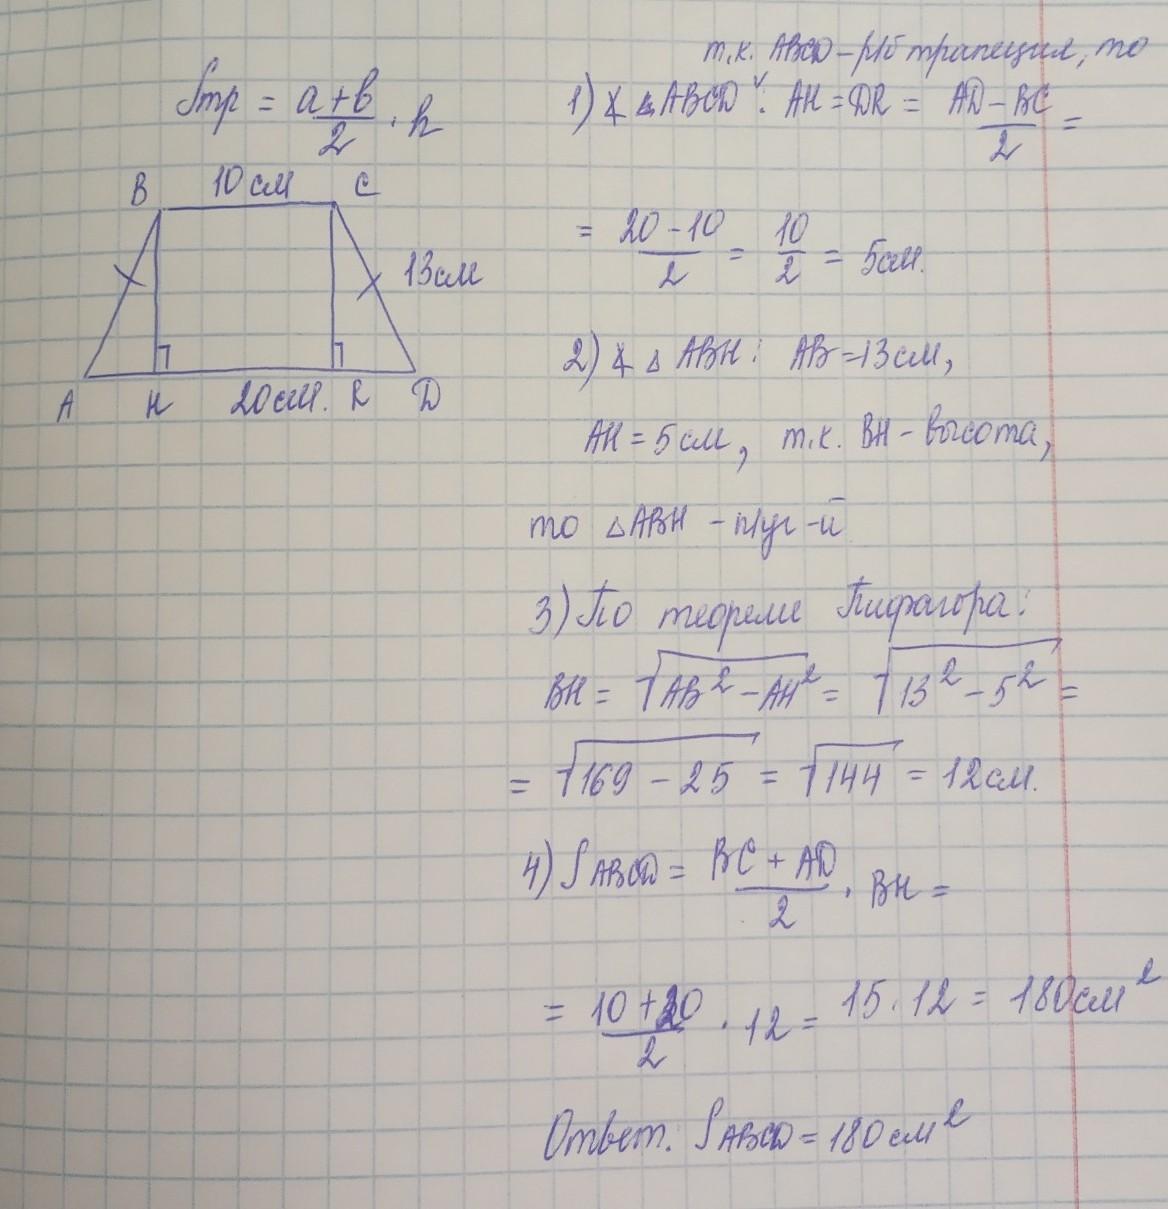 Sтр = a+b/2 · h
B 10 см C
13 см
A H 20 см. R D
т.к. ABCD – р/б трапеция, то
1) ∡ △ ABCD : AH = DR = AD – BC/2 =
= 20 – 10/2 = 10/2 = 5 см.
2) ∡ △ ABH : AB = 13 см,
AH = 5 см, т.к. BH – высота,
то △ABH – п/уг-й
3) По теореме Пифагора:
BH = √AB² – AH² = √13² – 5² =
= √169 – 25 = √144 = 12 см.
4) SABCD = BC + AD/2 · BH =
= 10 + 20/2 · 12 = 15 · 12 = 180 см²
Ответ. SABCD = 180 см²